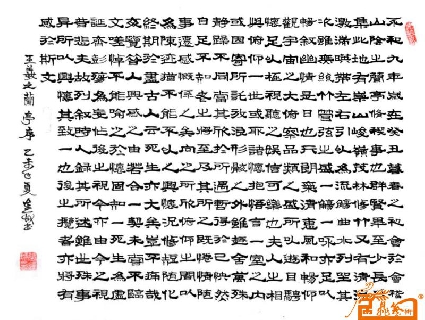 永和九年歲在癸丑暮春之初會于會稽
山陰之蘭亭脩禊事也群賢畢至少長咸
集此地有崇山峻領茂林脩竹又有清流
激湍暎帶左右引以為流觴曲水列坐其
次雖無絲竹管弦之盛一觴一詠亦足以
暢敘幽情是日也天朗氣清惠風和暢仰
觀宇宙之大俯察品類之盛所以遊目騁
懷足以極視聽之娛信可樂也夫人之相
與俯仰一世或取諸懷抱悟言一室之內
或因寄所託放浪形骸之外雖趣舍萬殊
靜躁不同當其欣於所遇暫得於己快然
自足不知老之將至及其所之既惓情隨
事遷感慨係之矣向之所欣俛仰之間已
為陳迹猶不能不以之興懷況脩短隨化
終期於盡古人云死生亦大矣豈不痛哉
每攬昔人興感之由若合一契未嘗不臨
文嗟悼不能喻之於懷固知一死生為虛
誕齊彭殤為妄作後之視今亦由今之視
昔悲夫故列敘時人錄其所述雖世殊事
異所以興懷其致一也後之攬者亦將有
感於斯文
王羲之蘭亭序 乙未 夏 書